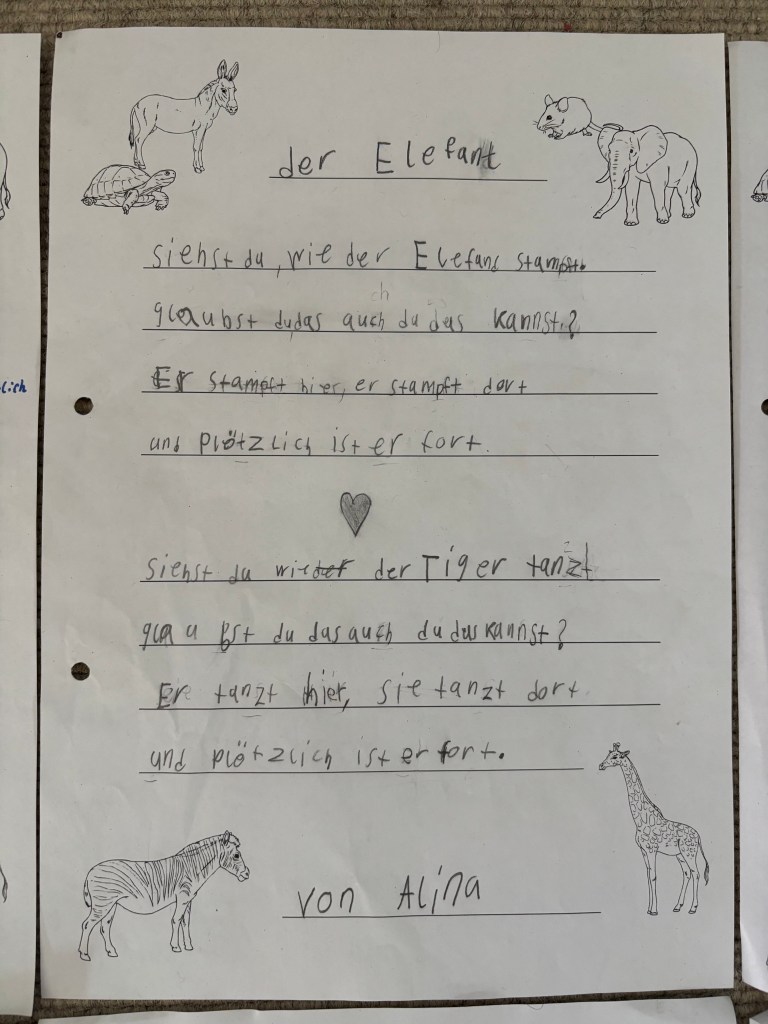 der Elefant
siehst du, wie der Elefand stampft.
ch
glaubst du das auch du das kannst?
Er stampft hier, er stampft dort
und plötzlich ist er fort.
siehst du wie der Tiger tanzt
glaubst du das auch du das kannst?
Er tanzt hier, sie tanzt dort
und plötzlich ist er fort.
von Alina
lich